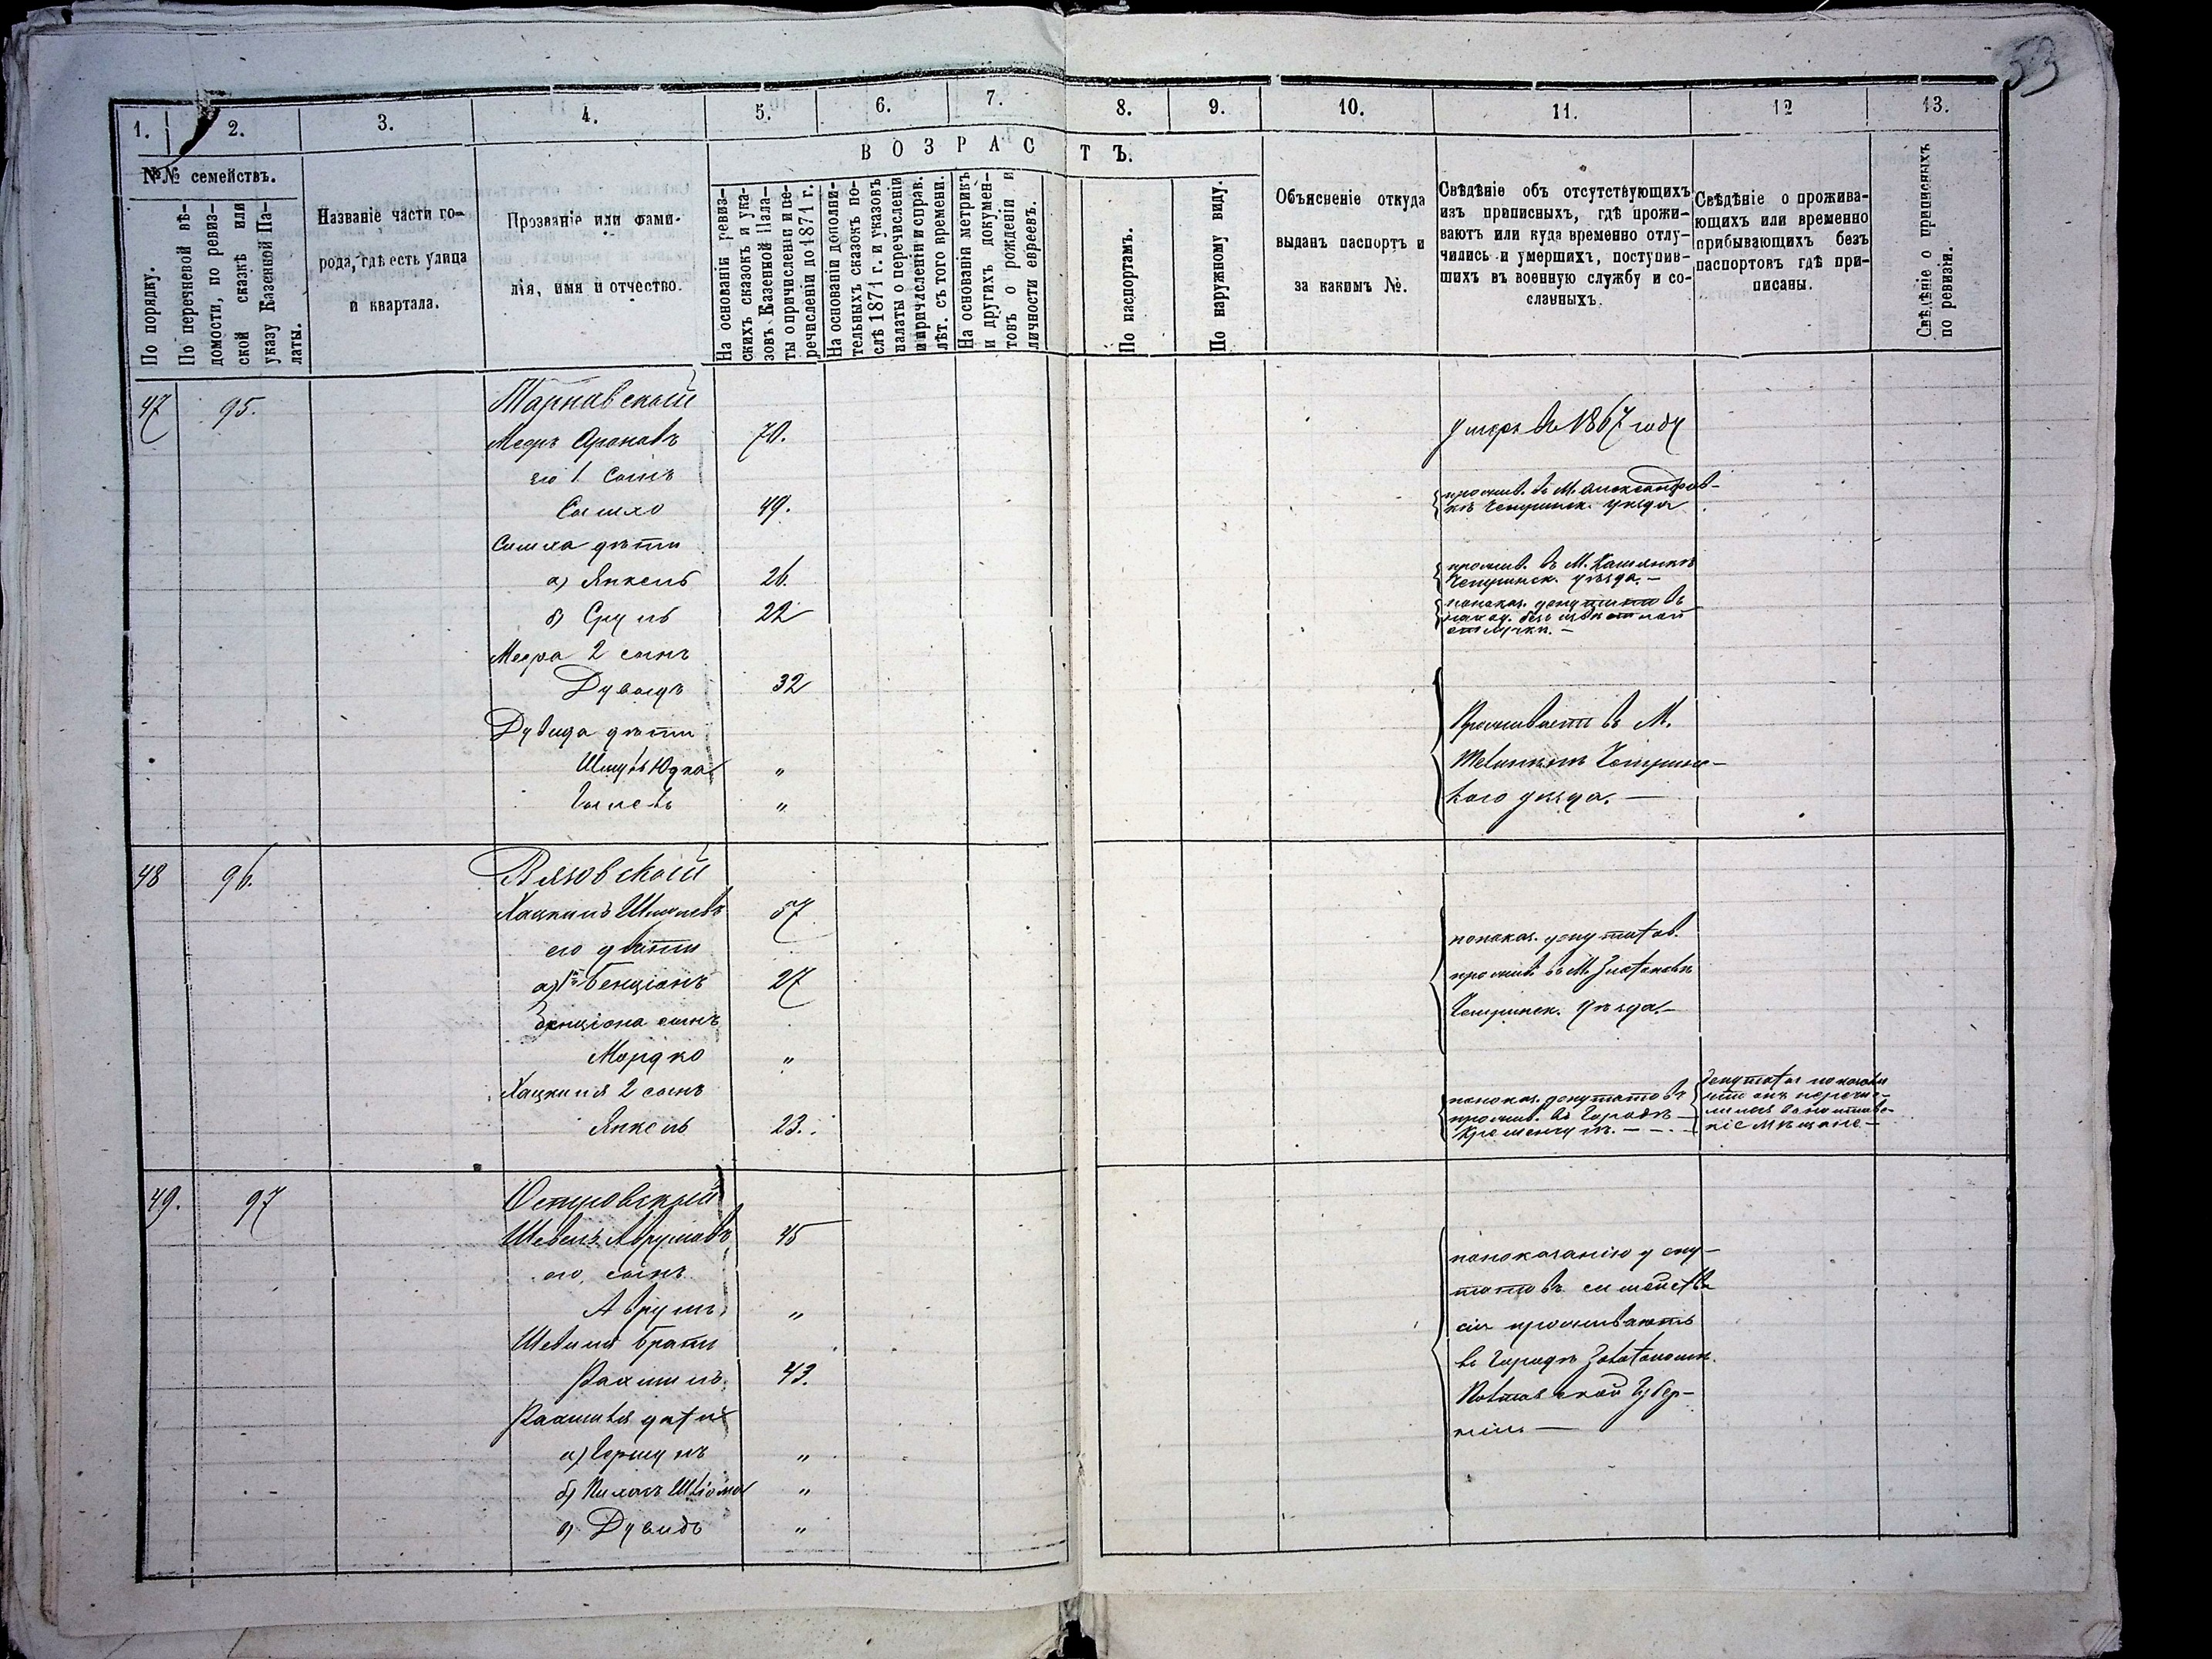 53
1. 2. 3. 4. 5. 6. 7. 8. 9. 10. 11. 12 13.
№№ семействъ.
По порядку.
По перечневой вѣ-
домости, по ревиз-
ской сказкѣ или
указу Казенной Па-
латы.
Названіе части го-
рода, гдѣ есть улица
и квартала.
Прозваніе или фами-
лія, имя и отчество.
ВОЗРАСТЪ.
На основаніи ревиз-
скихъ сказокъ и ука-
зовъ Казенной Пала-
ты о причисленіи и пе-
речисленіи до 1871 г.
На основаніи дополни-
тельныхъ сказокъ по-
слѣ 1871 г. и указовъ
палаты о перечисленіи
и причисленіи и исправ.
лѣт. съ того времени.
На основаніи метрикъ
и другихъ докумен-
товъ о рожденіи и
личности евреевъ.
По паспортамъ.
По наружному виду.
Объясненіе откуда
выданъ паспортъ и
за какимъ №.
Свѣдѣніе объ отсутствующихъ
изъ приписныхъ, гдѣ прожи-
ваютъ или куда временно отлу-
чились и умершихъ, поступив-
шихъ въ военную службу и со-
сланныхъ.
Свѣдѣніе о прожива-
ющихъ или временно
прибывающихъ безъ
паспортовъ гдѣ при-
писаны.
Свѣдѣніе о приписныхъ
по ревизіи.
47 95. Тарнавскій
Мееръ Ароновъ 70. умеръ въ 1867 году
его 1 Сынъ
Симхо 49. прожив. въ М. Александров-
кѣ Чигиринск. уѣзда
Симха дѣти
а) Янкель 26. прожив. въ М. Каменкѣ
Чигиринск. уѣзда. —
б) Сруль 22 по показ. депутатовъ
наход. безъ извѣстной
отлучки. —
Меера 2 сынъ
Дувидъ 32
Дувида дѣти Проживаетъ въ М.
Шмуль Юдка "
Чигиринс-
кого уѣзда. —
"
48 96. Вязовскій
Хацкиль Шмулевъ 57
его дѣти по показ. депутатов.
а) 1й Бенціонъ 27 прожив. въ М. Златополѣ
Бенціона сынъ Чигиринск. Уѣзда. —
Мордко "
Хацкиля 2 сынъ
Янкель 23. по показ. депутатовъ
прожив. въ Городѣ
Кременчугѣ. — —
Депутаты показали
что онъ перечис-
лился в
мѣщане —
49. 97 Островскій
Шевель Аврумовъ 45
его сынъ по показанію депу-
татовъ семейства
Аврумъ "
сіи проживаютъ
Шевеля братъ
въ Городѣ Золотоноши
Рахмиль 43.
Полтавской Губер-
Рахмиля дѣти
ніи —
а) Гершунъ "
б) "
в) Дувидъ "